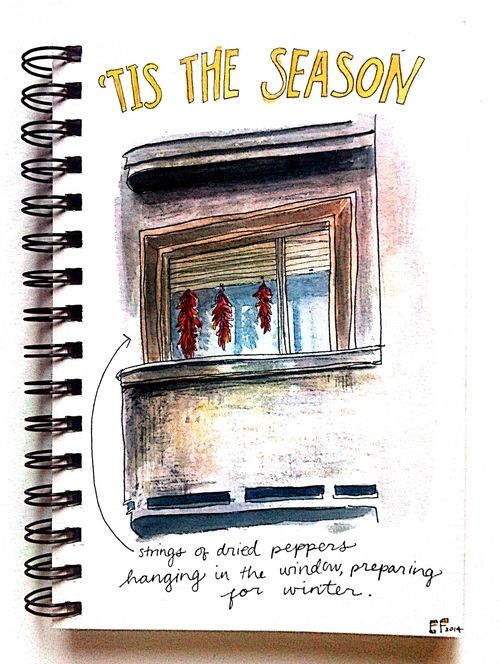 'TIS THE SEASON
strings of dried peppers
hanging in the window, preparing
for winter.
EF 2014